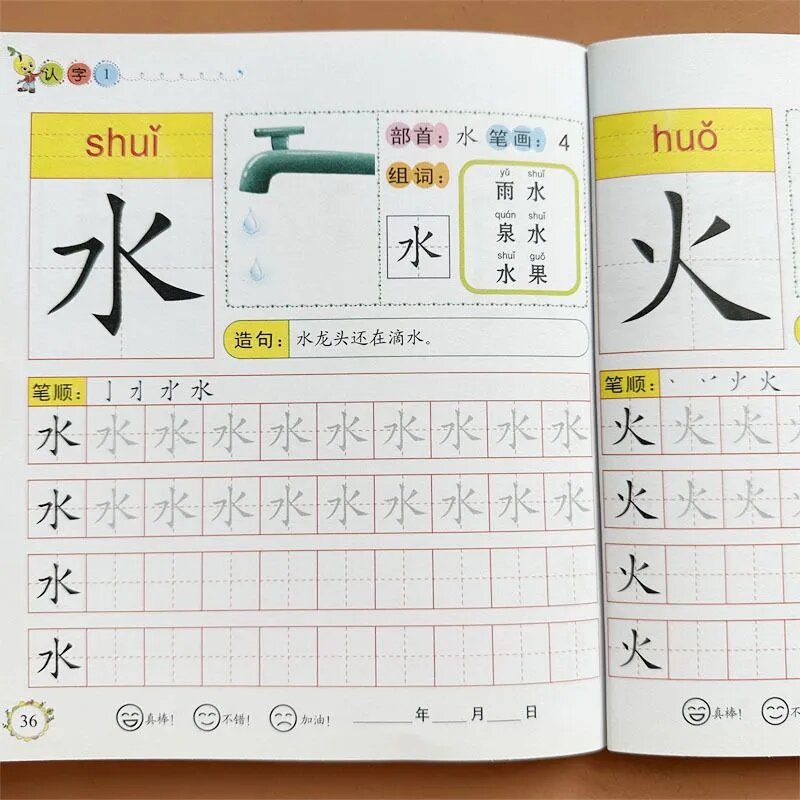 认字1
shuǐ
水
部首：水 笔画：4
组词：
yǔ shuǐ
雨水
quán shuǐ
泉水
shuǐ guǒ
水果
水
造句：水龙头还在滴水。
笔顺：
水水水水水水水水水水
水水水水水水水水水水
水
水
36 真棒！ 不错！ 加油！ ____年____月____日
huǒ
火
笔顺：
火火火火
火火火火
火
火
真棒！